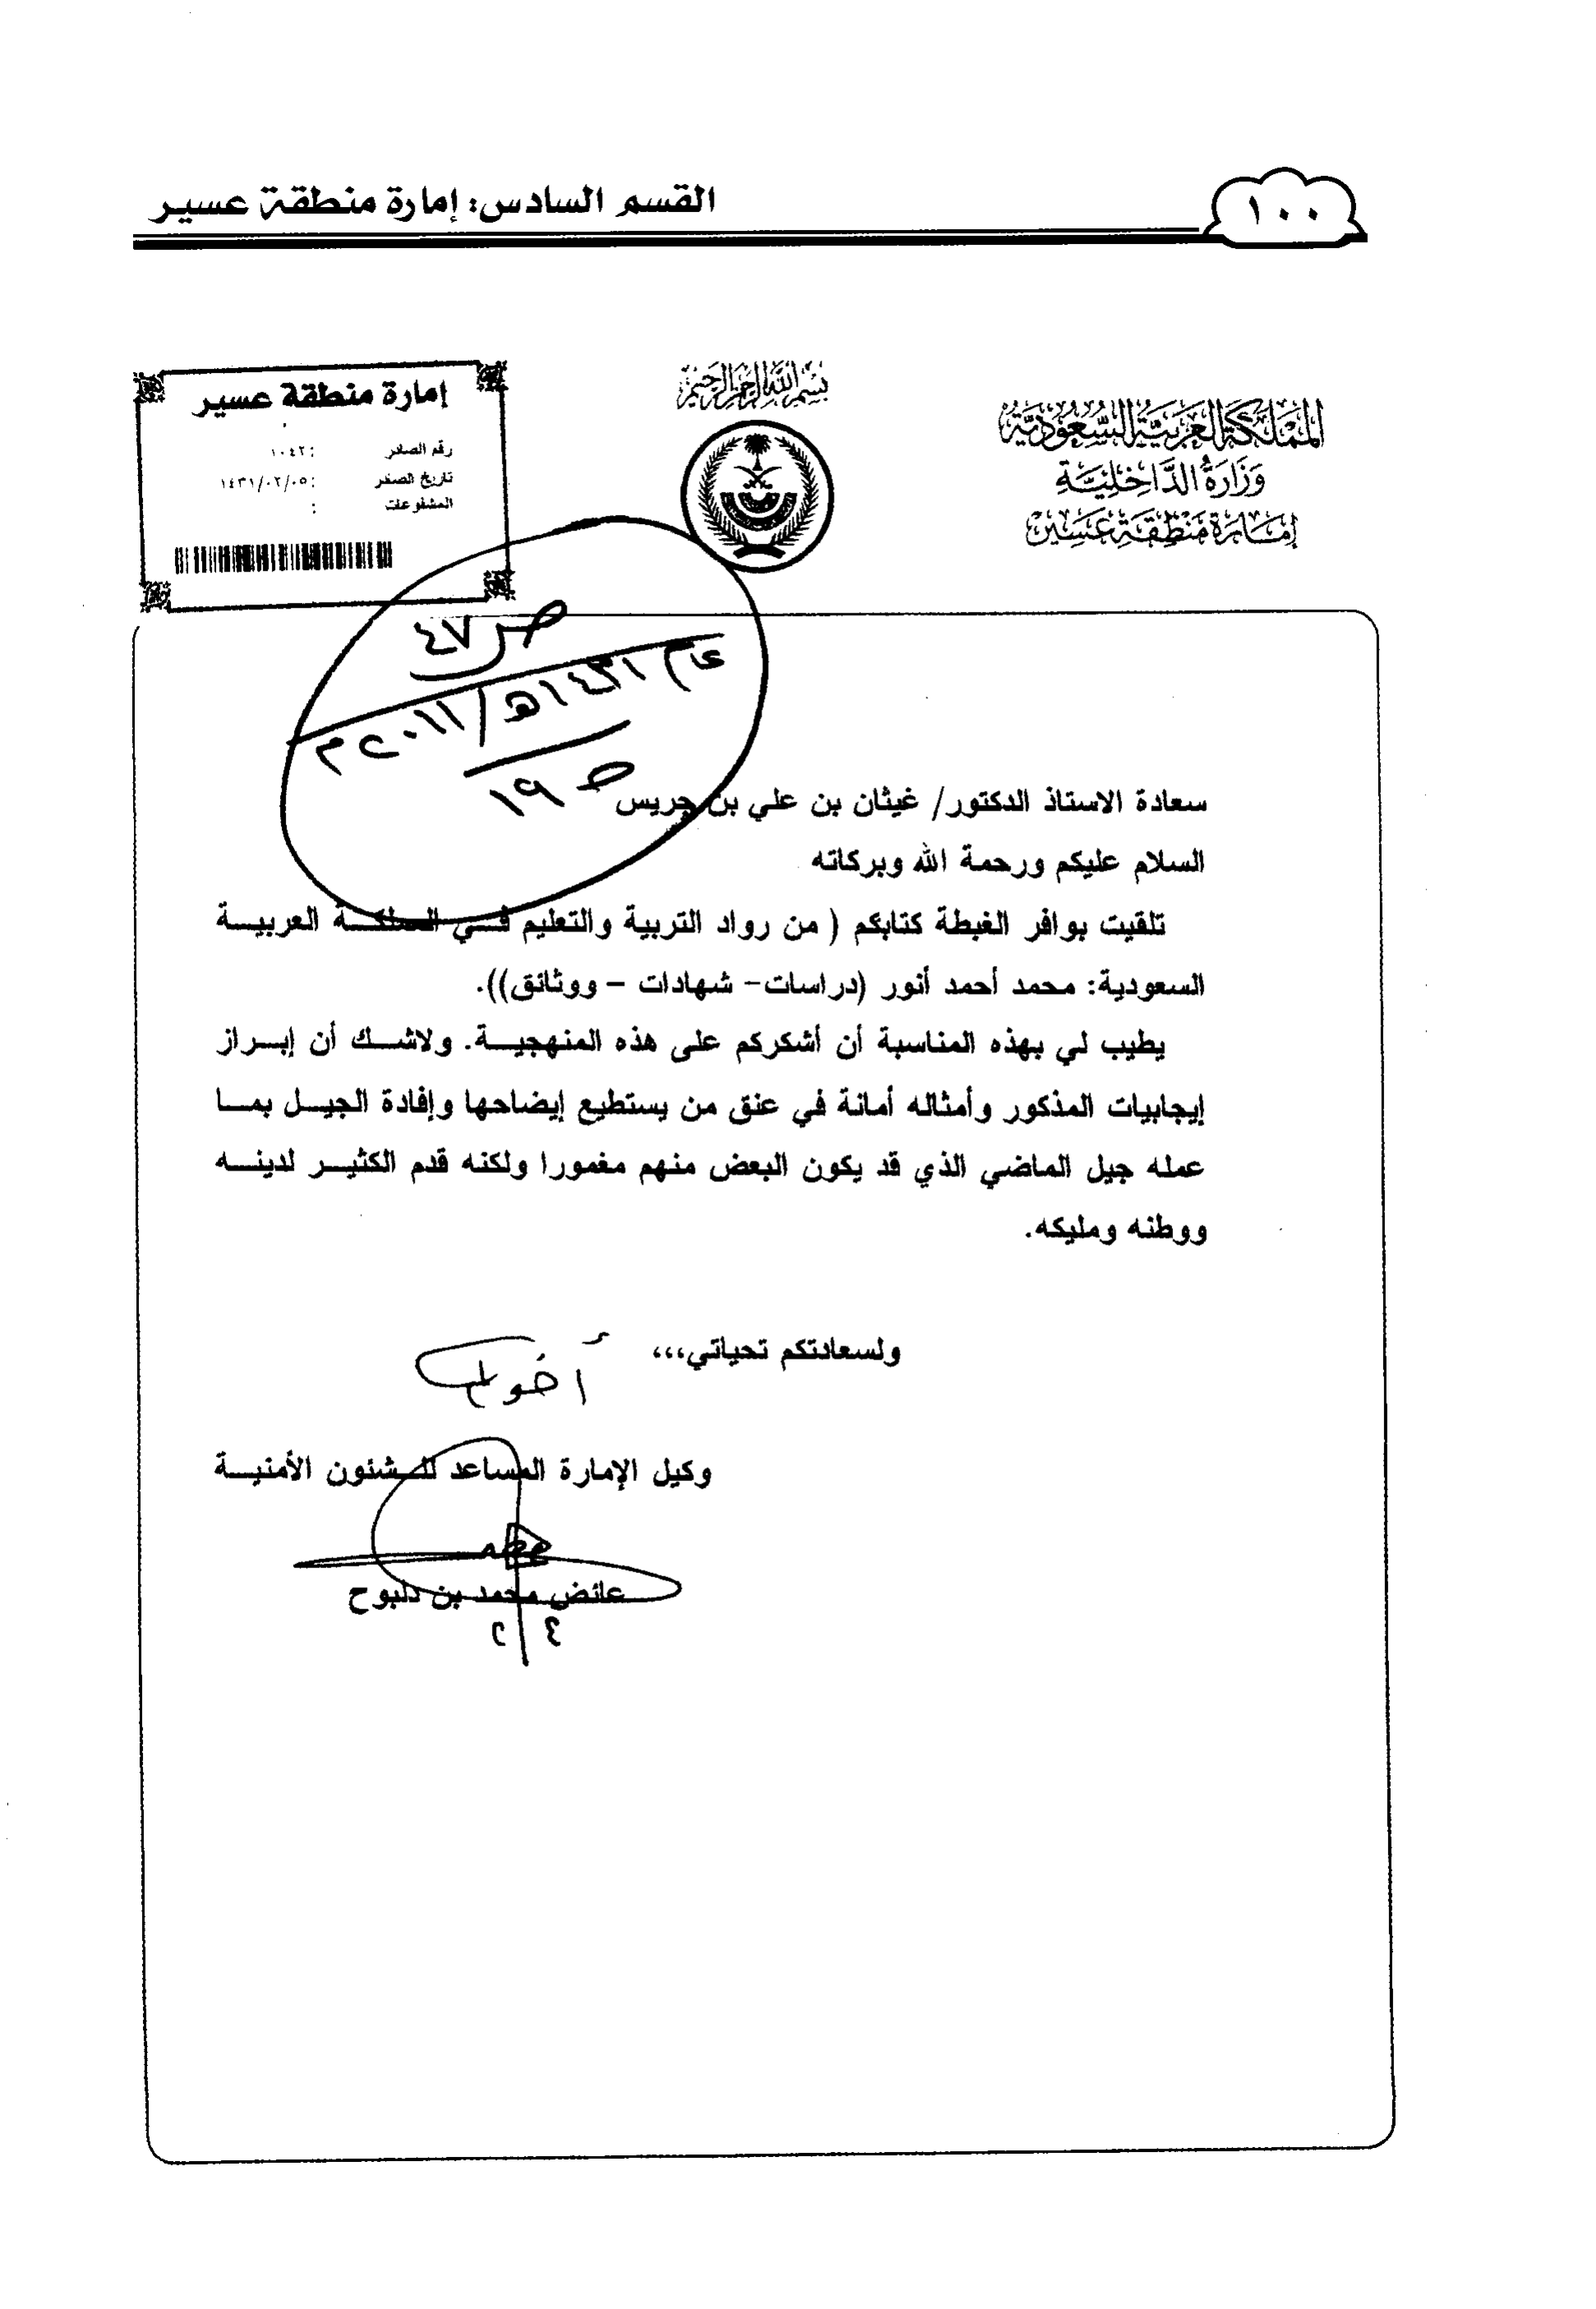 ١٠٠
القسم السادس: إمارة منطقة عسير
المملكة العربية السعودية
وزارة الداخلية
إمارة منطقة عسير
بسم الله الرحمن الرحيم
إمارة منطقة عسير
رقم الصادر : ١٠٤٢
تاريخ الصادر : ١٤٣١/٠٢/٠٥
المشفوعات :
ص ٤٧
عام ١٤٣١هـ/٢٠١١م
ص ١٩
سعادة الاستاذ الدكتور/ غيثان بن علي بن جريس
السلام عليكم ورحمة الله وبركاته
تلقيت بوافر الغبطة كتابكم ( من رواد التربية والتعليم في المملكة العربية
السعودية: محمد أحمد أنور (دراسات- شهادات – ووثائق)).
يطيب لي بهذه المناسبة أن أشكركم على هذه المنهجية. ولاشك أن إبراز
إيجابيات المذكور وأمثاله أمانة في عنق من يستطيع إيضاحها وإفادة الجيل بما
عمله جيل الماضي الذي قد يكون البعض منهم مغمورا ولكنه قدم الكثير لدينه
ووطنه ومليكه.
ولسعادتكم تحياتي،،،
أخوكم
وكيل الإمارة المساعد للشئون الأمنية
عائض محمد بن دلبوح
٤/٢